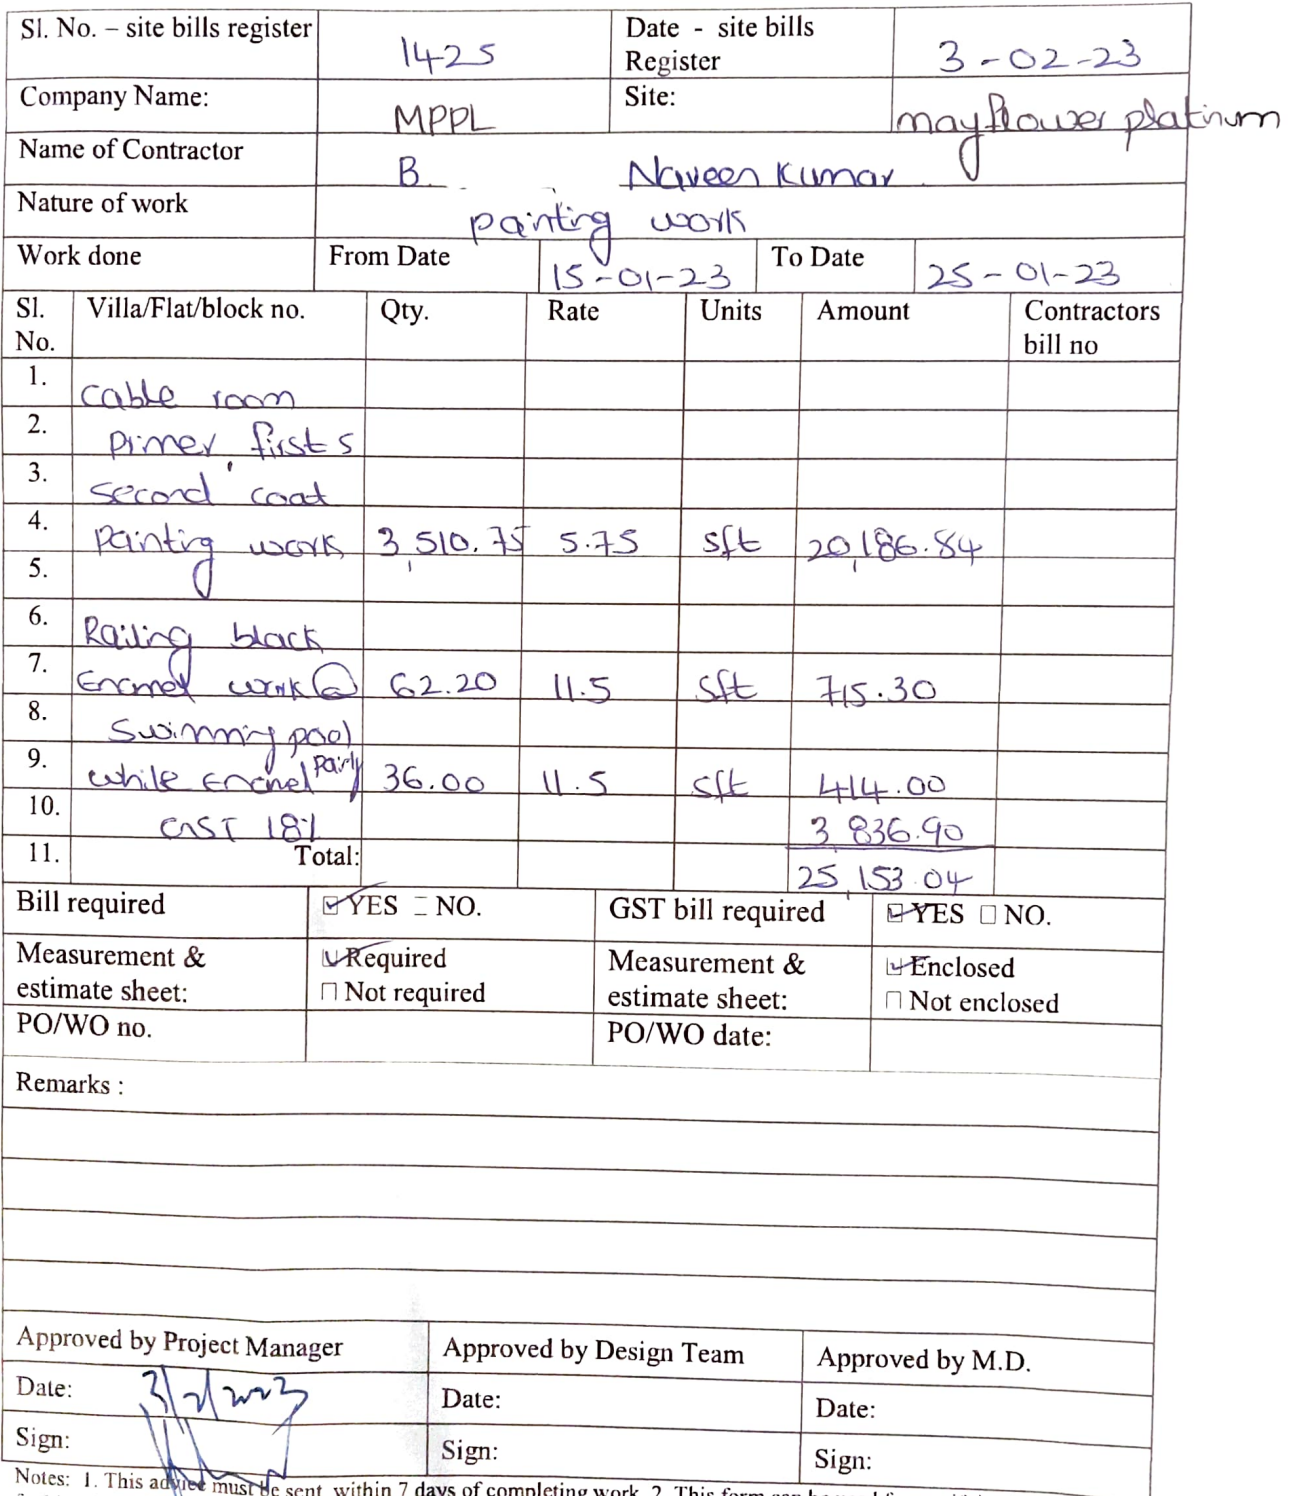 Sl. No. – site bills register 1425 Date - site bills Register 3-02-23
Company Name: MPPL Site: mayflower platinum
Name of Contractor B. Naveen Kumar
Nature of work painting work
Work done From Date 15-01-23 To Date 25-01-23
Sl. No. Villa/Flat/block no. Qty. Rate Units Amount Contractors bill no
1. cable room
2. primer, first s
3. second coat
4. painting work 3,510.75 5.75 sft 20,186.84
5.
6. Railing black
7. Enamel work@ 62.20 11.5 sft 715.30
8. Swimming pool
9. while Enamel 36.00 11.5 sft 414.00
10. GST 18% 3,836.90
11. Total: 25,153.04
Bill required ☑ YES □ NO. GST bill required ☑ YES □ NO.
Measurement & estimate sheet: ☑ Required Measurement & estimate sheet: ☑ Enclosed
□ Not required □ Not enclosed
PO/WO no. PO/WO date:
Remarks :
Approved by Project Manager Approved by Design Team Approved by M.D.
Date: 3/2/2023 Date: Date:
Sign: Sign: Sign:
Notes: 1. This advice must be sent within 7 days of completing work. 2. This form can be